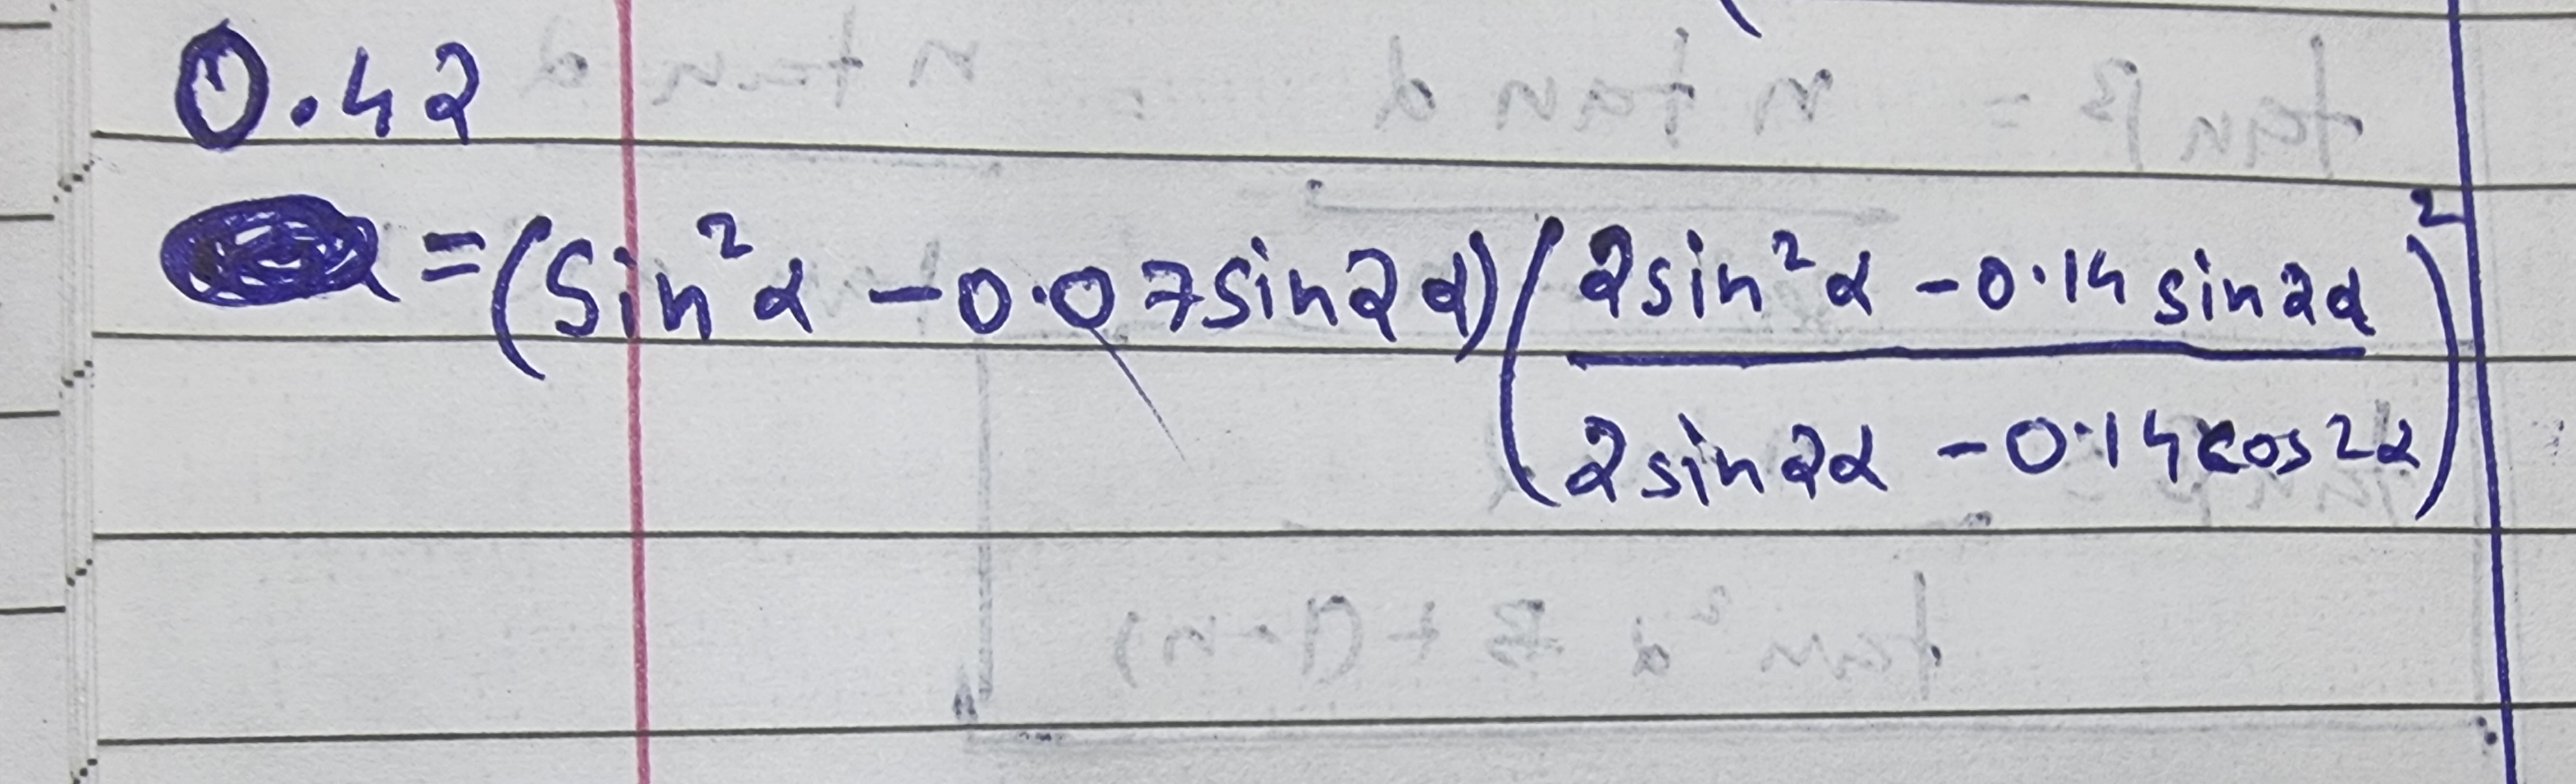 0.42
=(sin²α - 0.07sin2α)(2sin²α - 0.14sin2α / 2sin2α - 0.14cos2α)²